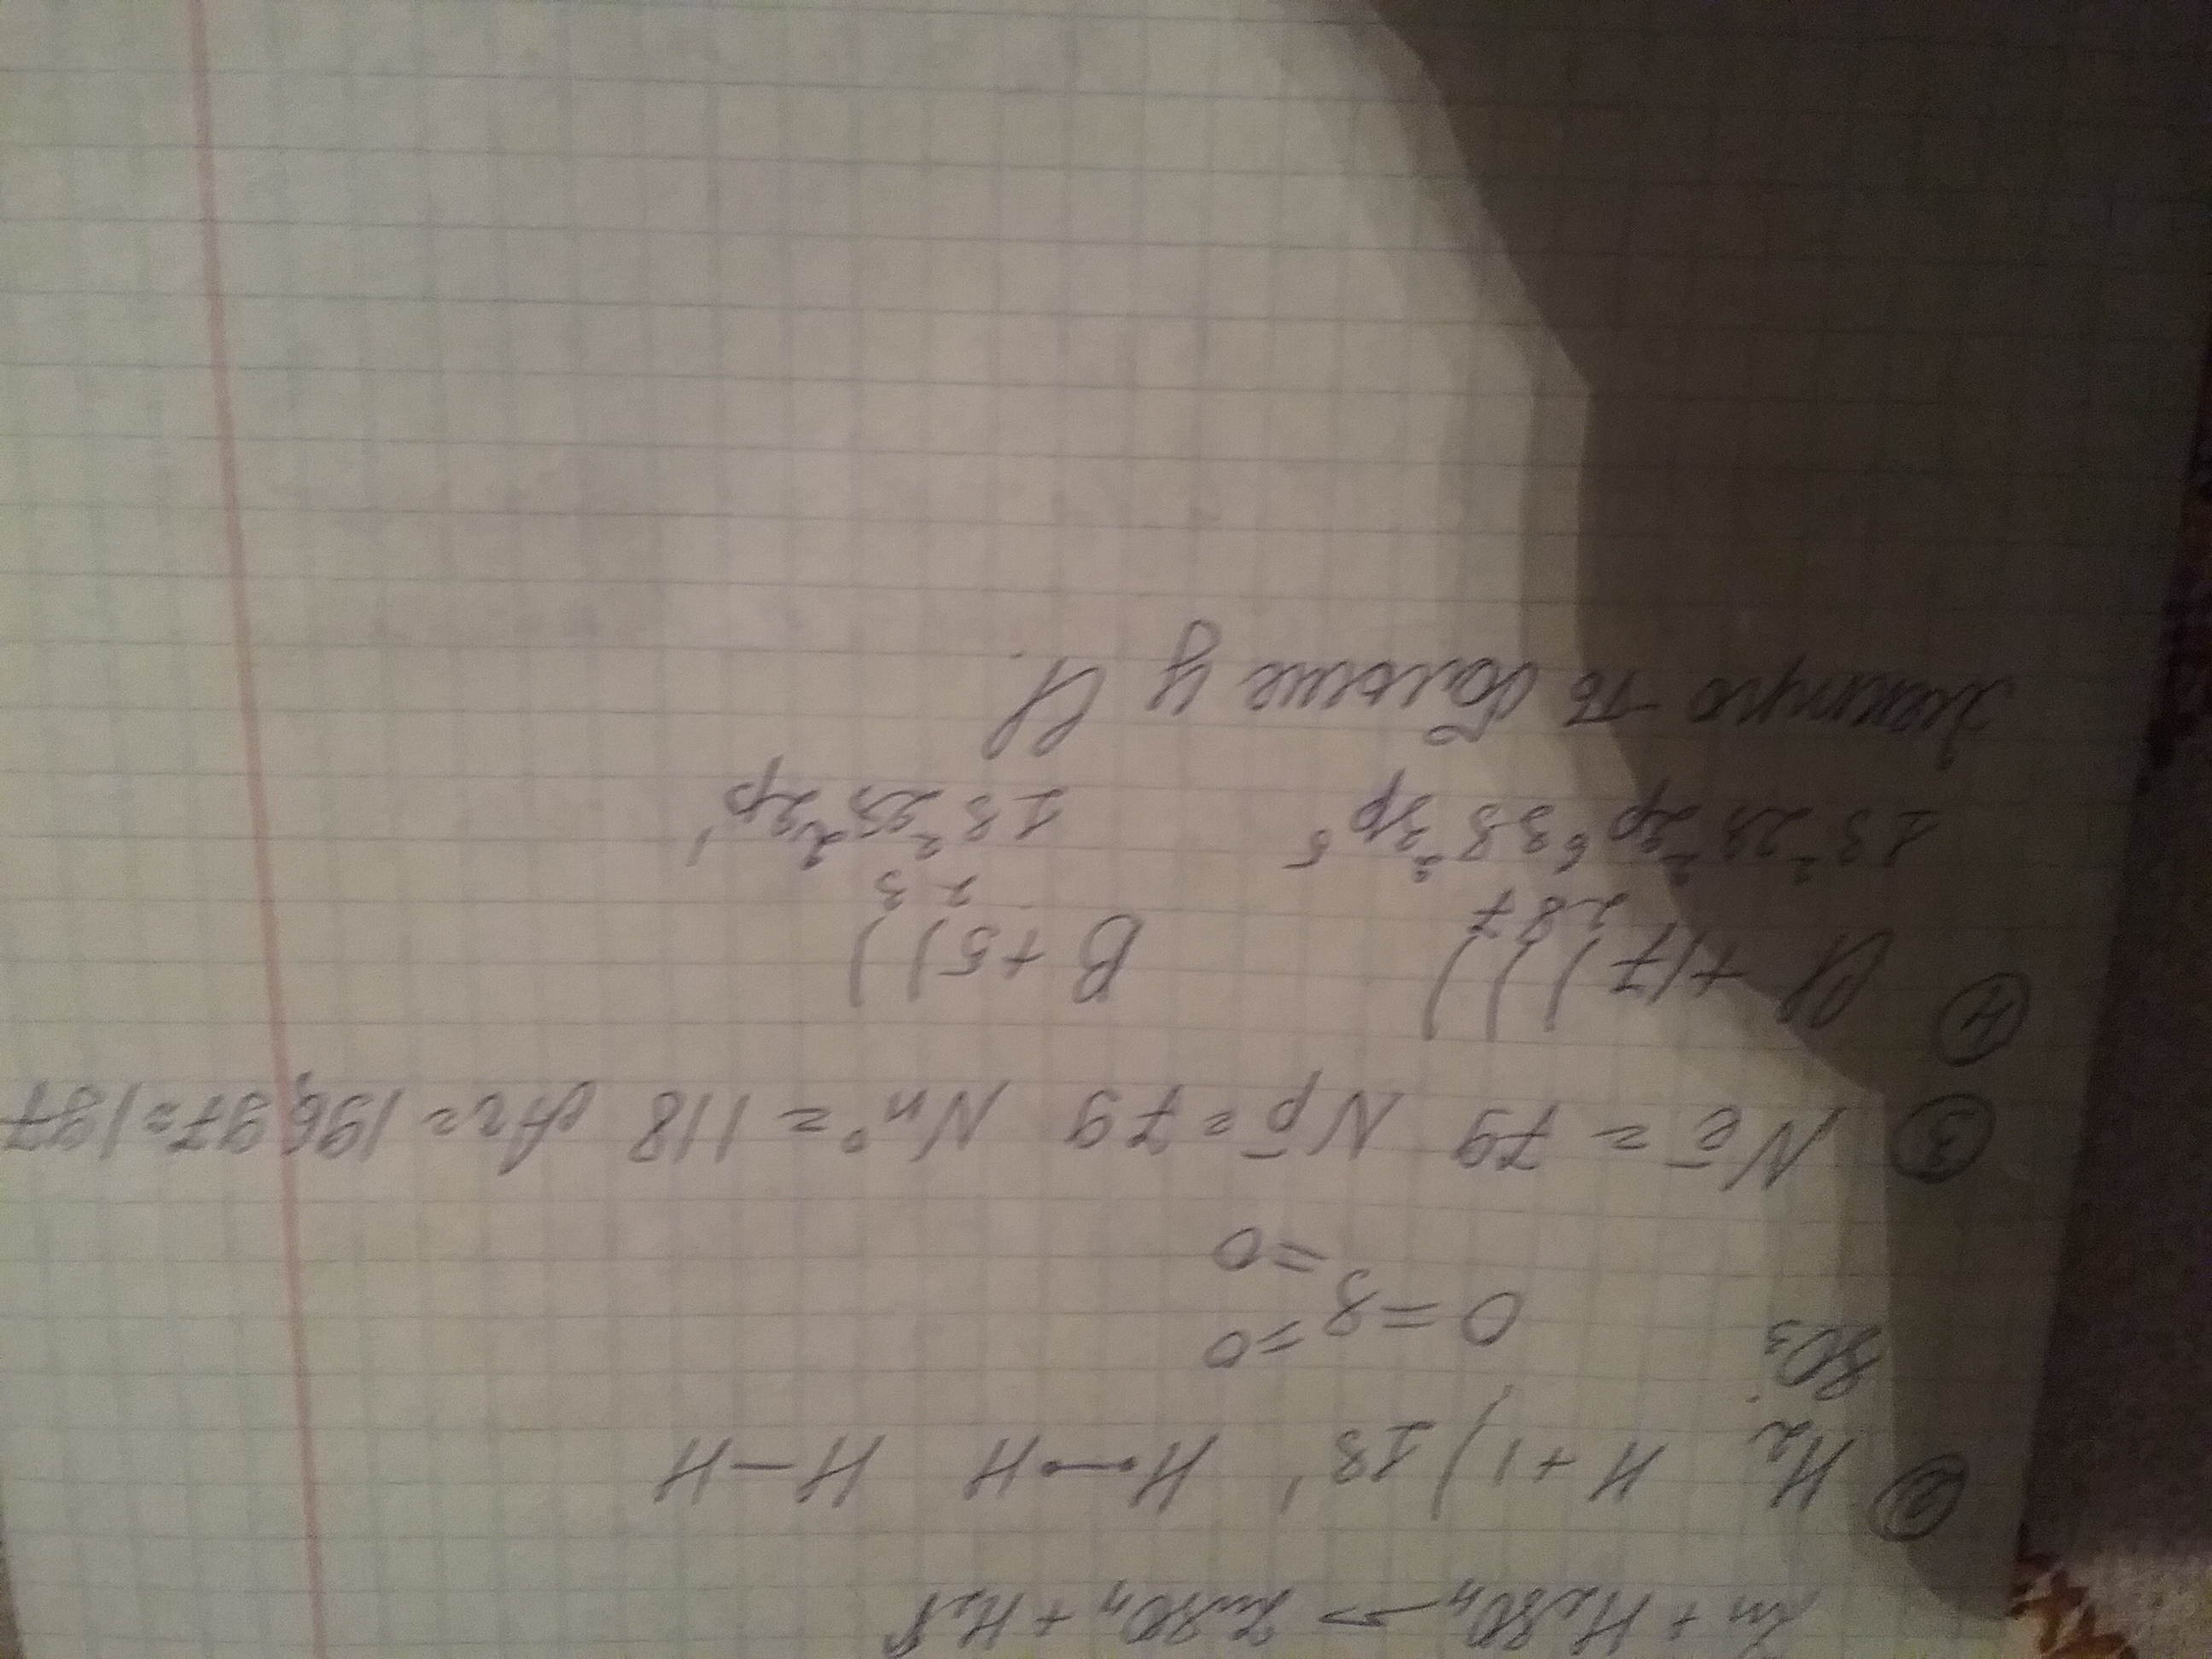 Zn + H₂SO₄ → ZnSO₄ + H₂↑
② H₂ H +1) 1s¹ H•–•H H–H
SO₃
O=S=O
=O
③ Nē = 79 Np̄ = 79 Nn° = 118 Ar = 196,97 = 197
④ Cl +17))) B +5))
2 8 7 2 3
1s²2s²2p⁶3s²3p⁵ 1s²2s²2p¹
больше у Cl.